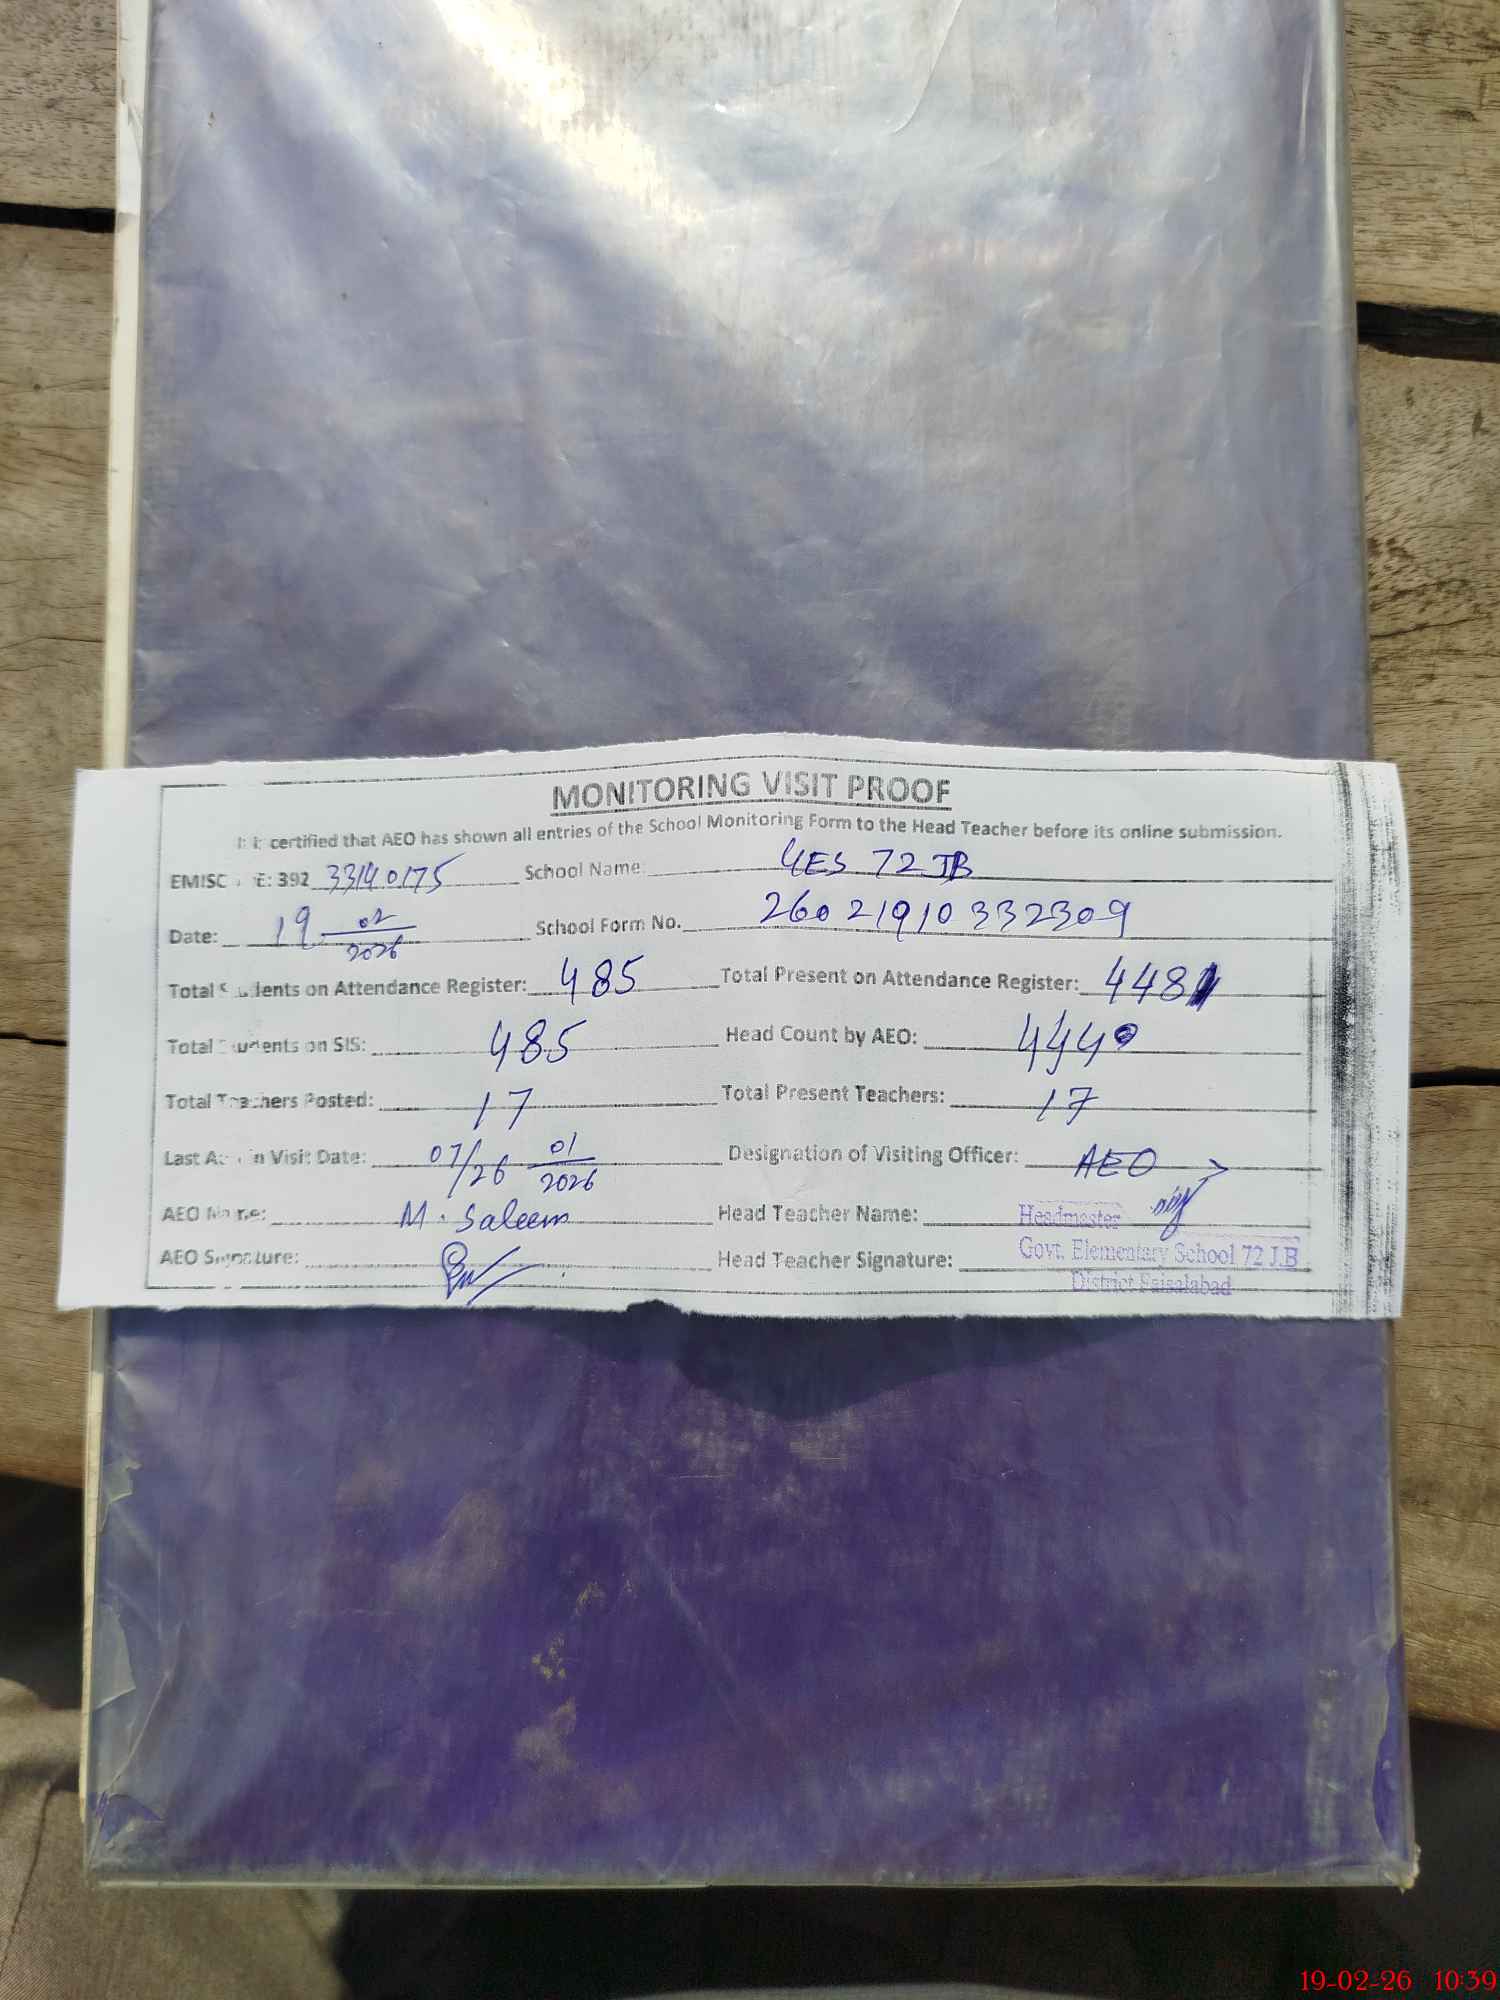 MONITORING VISIT PROOF
certified that AEO has shown all entries of the School Monitoring Form to the Head Teacher before its online submission.
EMISC E: 392 33140175 School Name: GES 72 JB
Date: 19 02/2026 School Form No. 26021910332309
Total Students on Attendance Register: 485 Total Present on Attendance Register: 448
Total Students on SIS: 485 Head Count by AEO: 444
Total Teachers Posted: 17 Total Present Teachers: 17
Last Visit Date: 07/26 01/2026 Designation of Visiting Officer: AEO
AEO Name: M. Saleem Head Teacher Name: Headmaster
AEO Signature: Head Teacher Signature: Govt. Elementary School 72 J.B
District Faisalabad
19-02-26 10:39